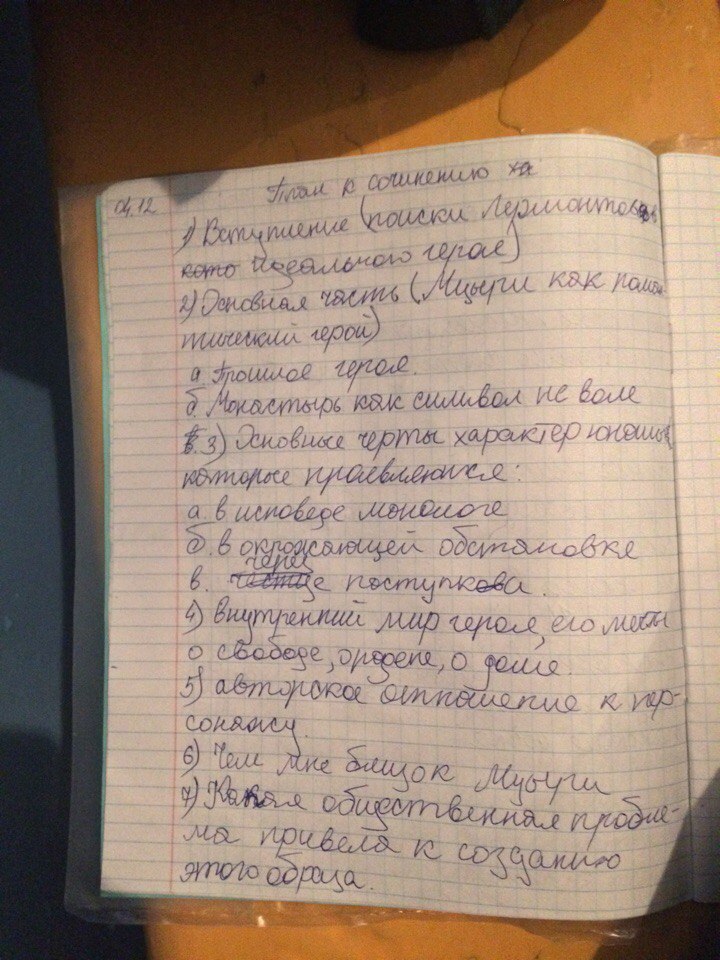 04.12
План к сочинению
1) Вступление (поиски Лермонтовым
идеального героя)
2) Основная часть (Мцыри как роман-
тический герой)
а Прошлое героя.
б. Монастырь как символ не воле
3) Основные черты характер юноши,
которые проявляются:
а. в исповеде монологе
б. в окружающей обстановке
в. через поступки.
4) внутренний мир героя, его мечты
о свободе, о доме.
5) авторское отношение к пер-
сонажу.
6) Чем мне близок Мцыри
7) Какая общественная пробле-
ма привела к созданию
этого образа.